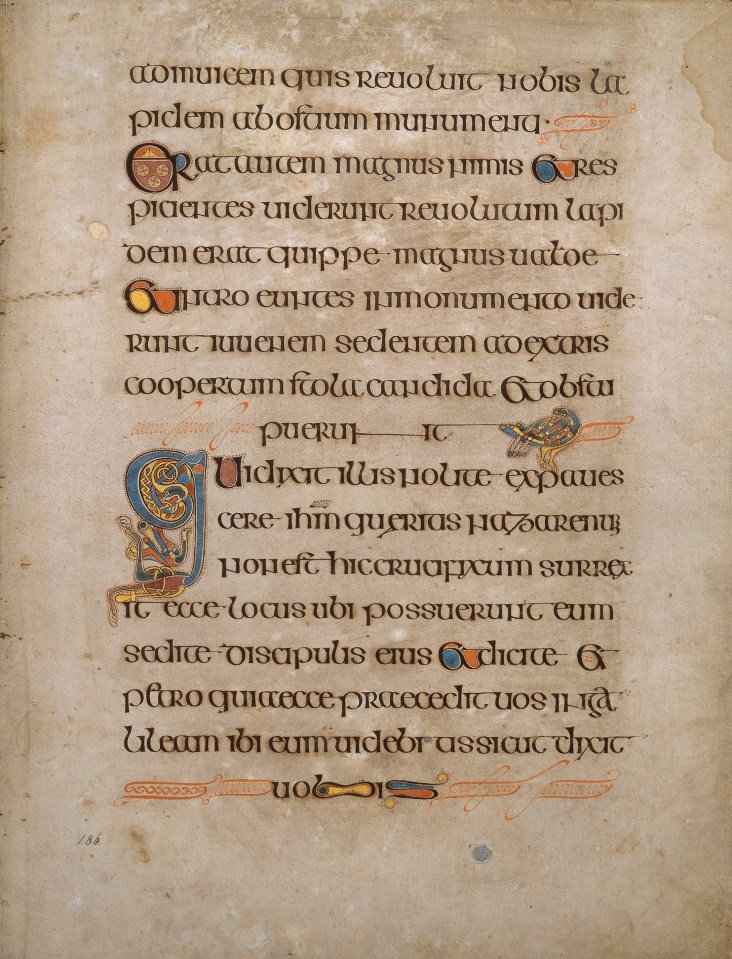 adinuicem quis reuoluit nobis la
pidem abostium munumenti·
Erat autem magnus nimis Et res
picientes uiderunt reuolutum lapi
dem erat quippe magnus ualde
Et intro euntes inmonumento uide
runt iuuenem sedentem adextris
coopertum stola candida Et obstu
puerunt
Qui dixit illis nolite expaues
cere ihm queritis nazarenum
non est hic crucifixum surrex
it ecce locus ubi possuerunt eum
sed ite discipulis eius Et dicite Et
petro quia ecce praecedit uos in ga
lileam ibi eum uidebitis sicut dixit
uobis
186